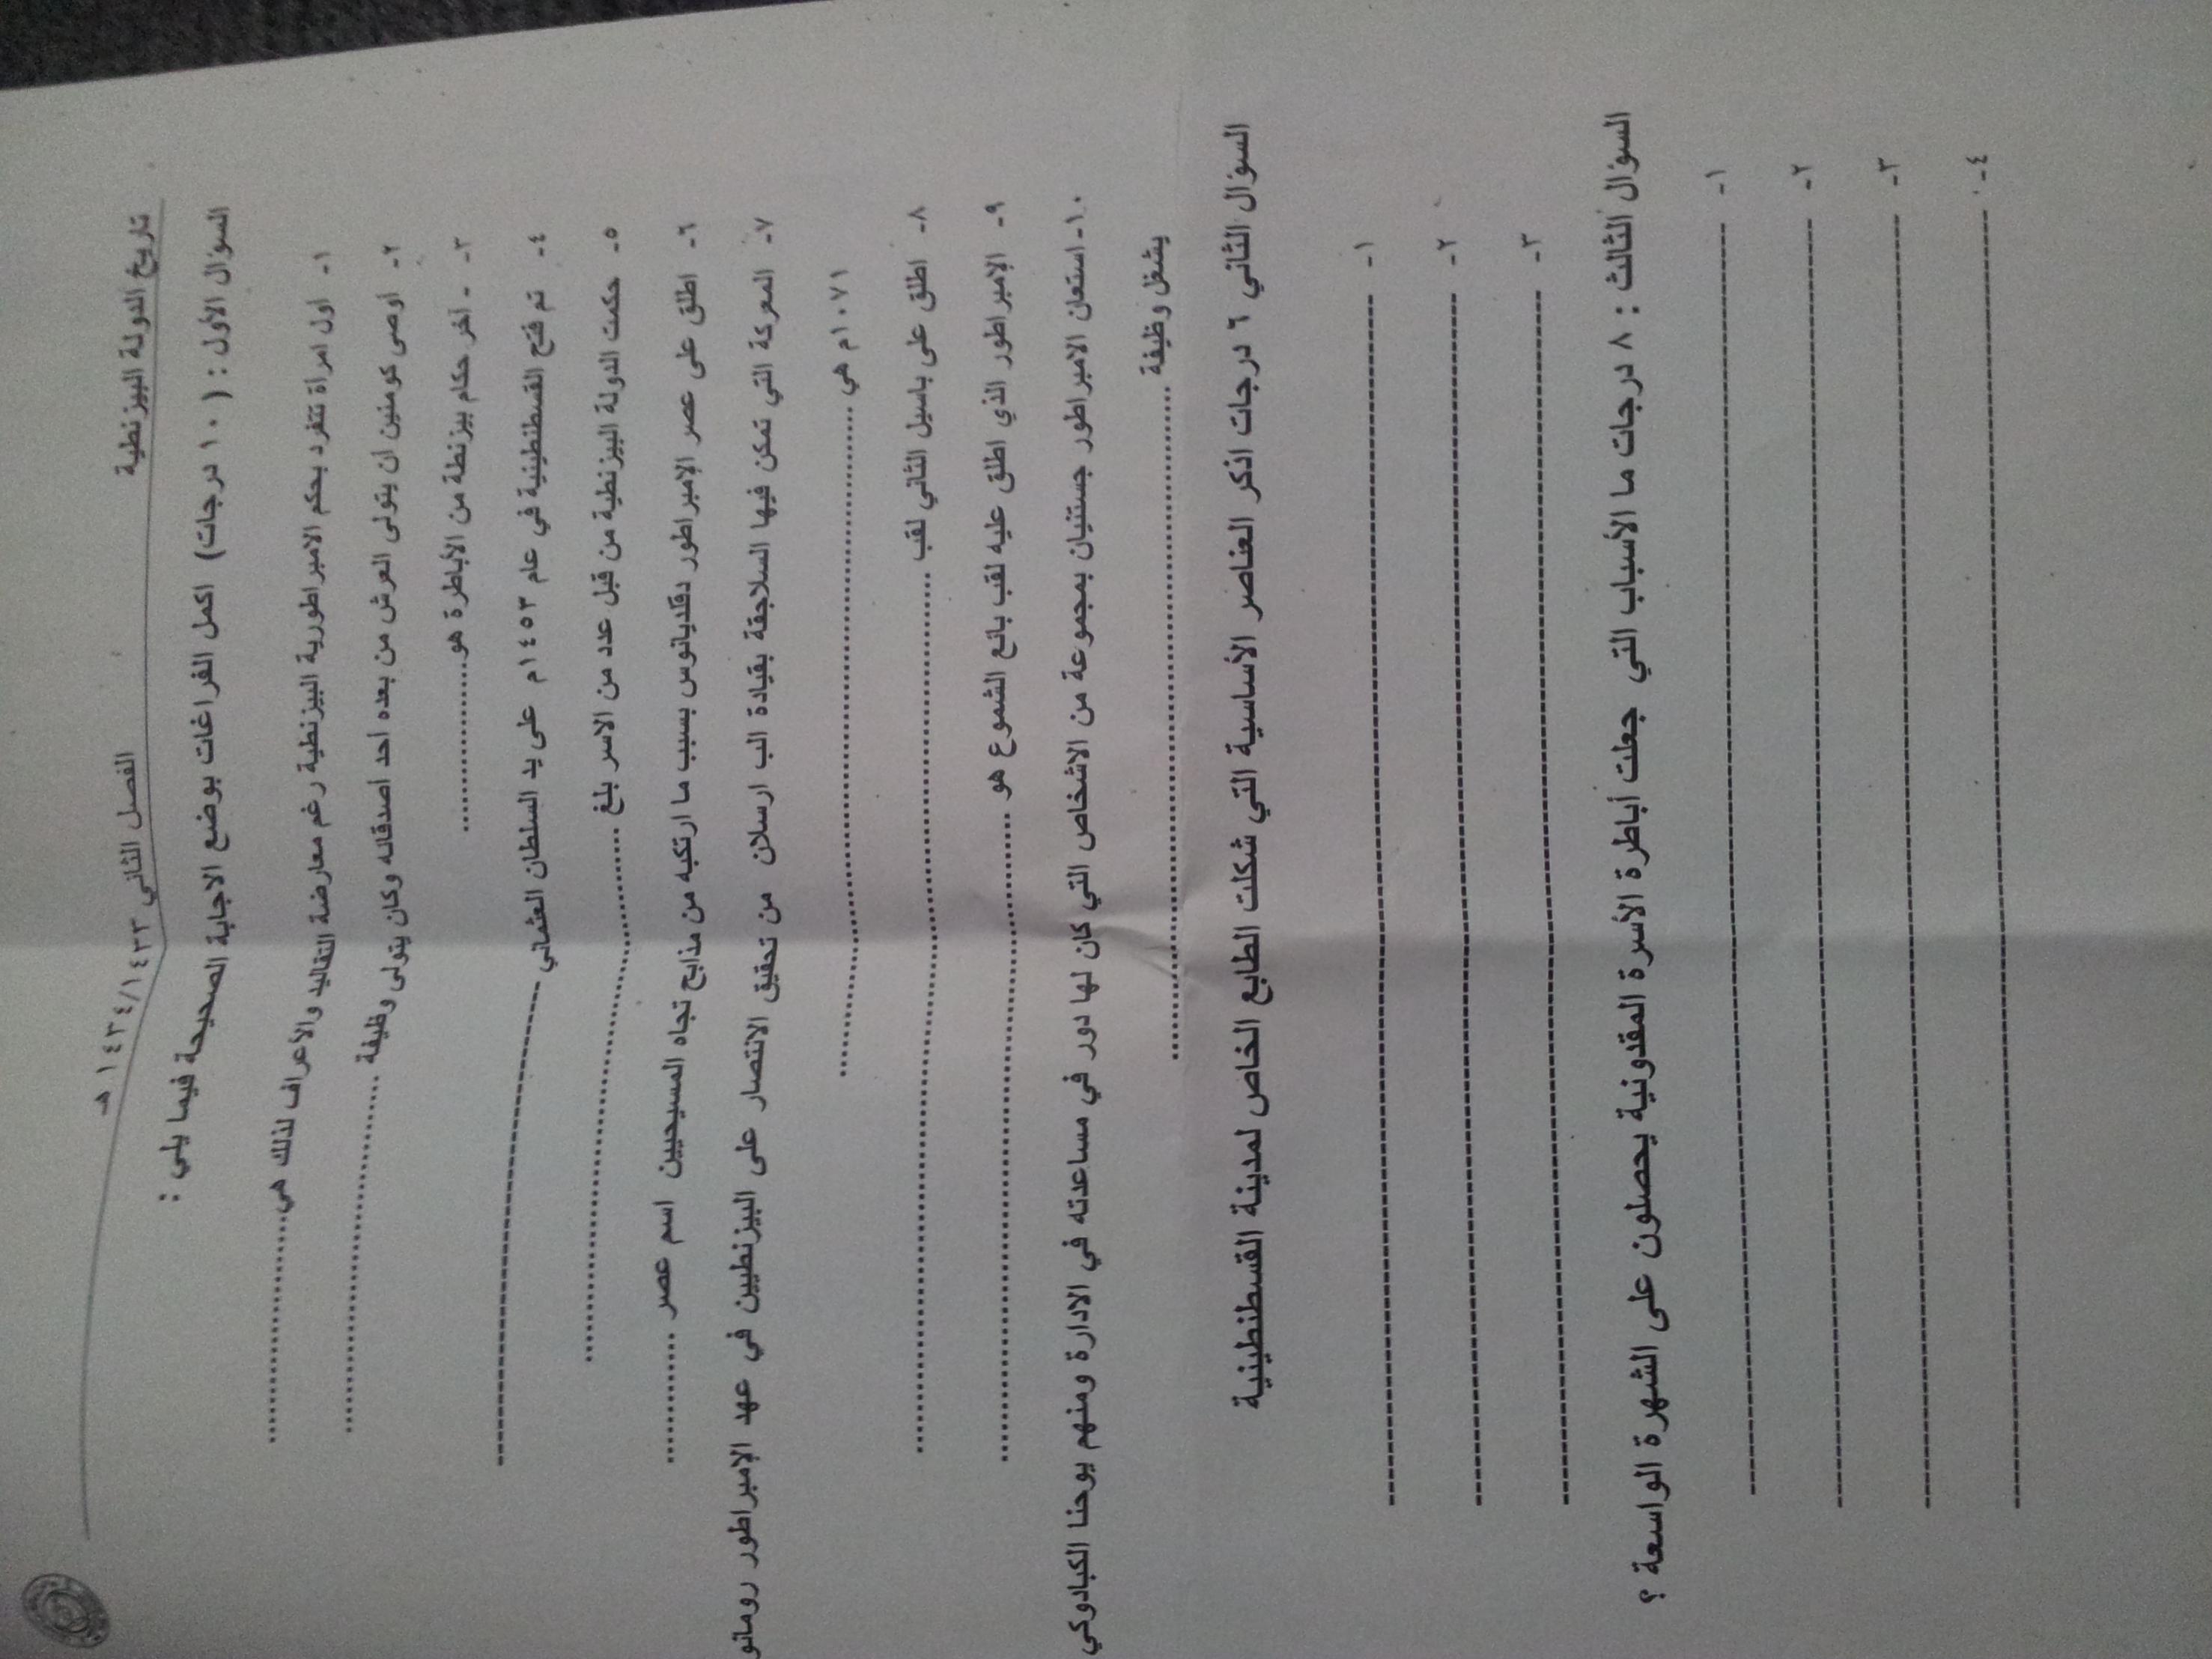 تاريخ الدولة البيزنطية الفصل الثاني ١٤٣٤/١٤٣٣ هـ
السؤال الأول : ( ١٠ درجات) اكمل الفراغات بوضع الاجابة الصحيحة فيما يلي :
١- اول امراة تتفرد بحكم الامبراطورية البيزنطية رغم معارضة التقاليد والأعراف لذلك هي..............................
٢- اوصى كومنين ان يتولى العرش من بعده احد اصدقائه وكان يتولى وظيفة ..............................
٣- - آخر حكام بيزنطة من الأباطرة هو......................
٤- تم فتح القسطنطينية في عام ١٤٥٣م على يد السلطان العثماني ------------------------------
٥- حكمت الدولة البيزنطية من قبل عدد من الاسر بلغ ..............................
٦- اطلق على عصر الإمبراطور دقلديانوس بسبب ما ارتكبه من مذابح تجاه المسيحيين اسم عصر ..............
٧- المعركة التي تمكن فيها السلاجقة بقيادة الب ارسلان من تحقيق الانتصار على البيزنطيين في عهد الإمبراطور رومانو
١٠٧١م هي ..............................
٨- اطلق على باسيل الثاني لقب ..............................
٩- الإمبراطور الذي اطلق عليه لقب بائع الشموع هو ..............................
١٠- استعان الامبراطور جستنيان بمجموعة من الاشخاص التي كان لها دور في مساعدته في الادارة ومنهم يوحنا الكبادوكي
يشغل وظيفة ..............................
السؤال الثاني ٦ درجات اذكر العناصر الأساسية التي شكلت الطابع الخاص لمدينة القسطنطينية
١- ------------------------------
٢- ------------------------------
٣- ------------------------------
السؤال الثالث : ٨ درجات ما الأسباب التي جعلت أباطرة الأسرة المقدونية يحصلون على الشهرة الواسعة ؟
١- ------------------------------
٢- ------------------------------
٣- ------------------------------
٤- ------------------------------